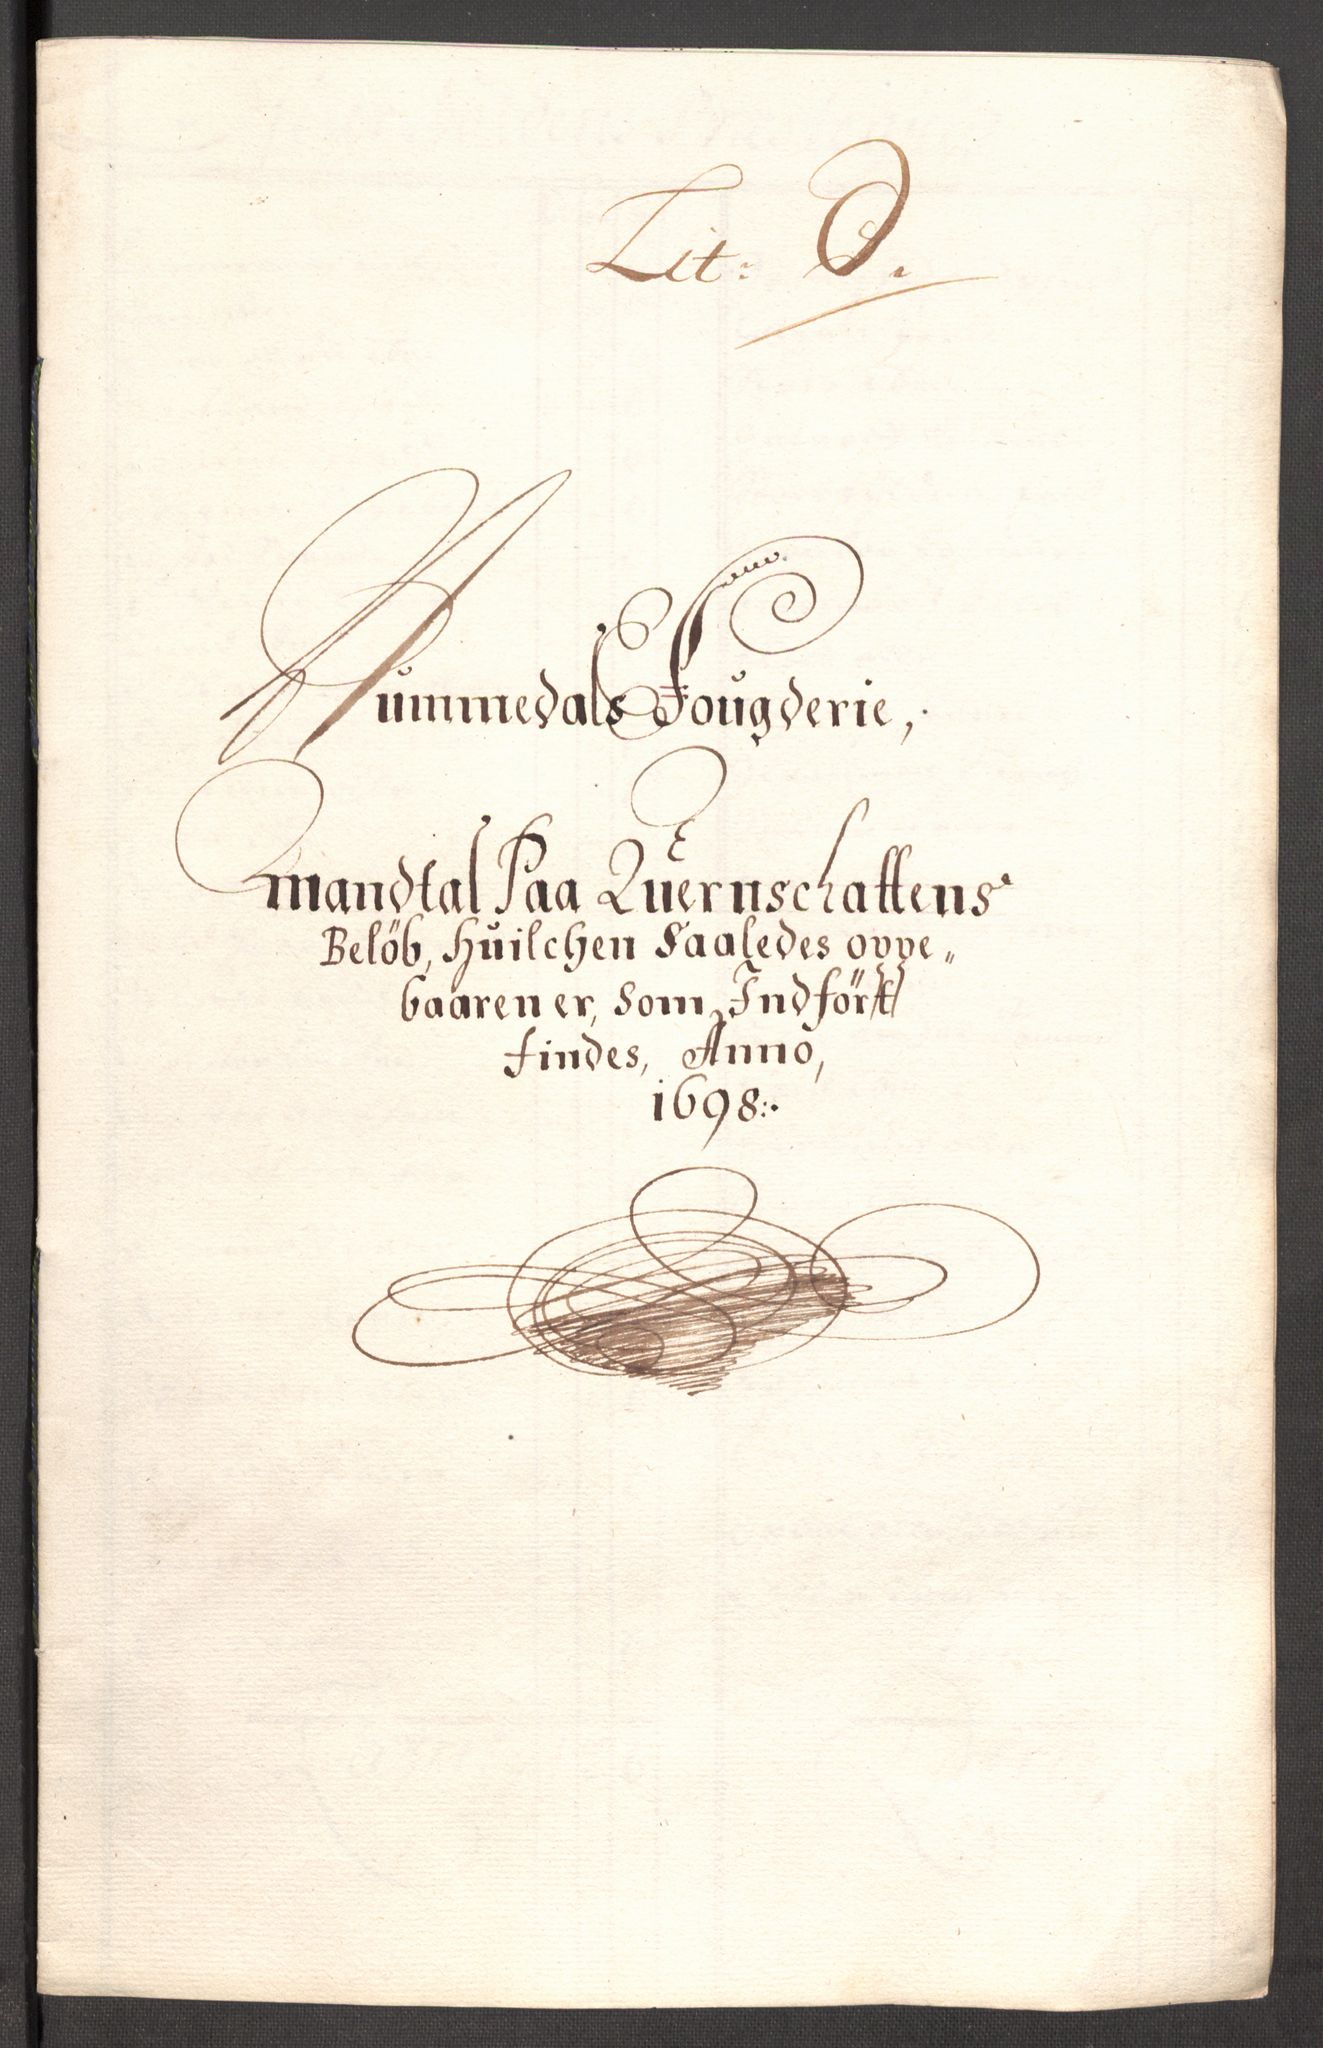 Lit: D.
Nummedals Fougderie,
Mandtal Paa Quernschattens
Belöb, Huilchen Saaledes oppe„
baaren er, Som Indfört
findes, Anno,
1698:.